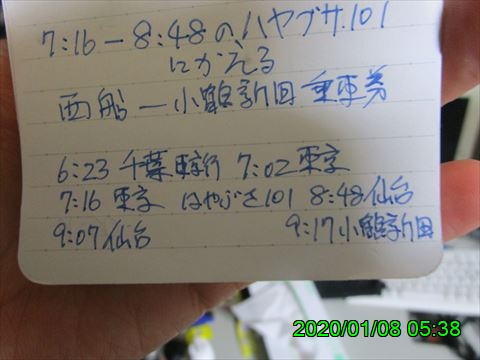 7:16-8:48のハヤブサ101
にかえる
西船-小鶴新田乗車券
6:23 千葉 東京行 7:02 東京
7:16 東京 はやぶさ101 8:48仙台
9:07仙台 9:17小鶴新田
2020/01/08 05:38